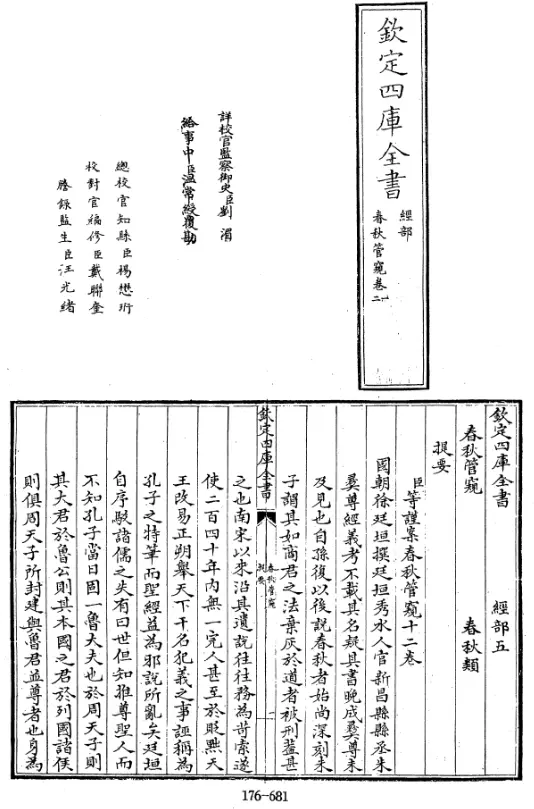 欽定四庫全書
經部
春秋管窺卷一
二
詳校官監察御史臣劉湄
給事中臣溫常綬覆勘
總校官知縣臣楊懋珩
校對官編修臣戴聯奎
謄錄監生臣汪光緒
欽定四庫全書 經部五
春秋管窺 春秋類
提要
臣等謹案春秋管窺十二卷
國朝徐廷垣撰廷垣秀水人官新昌縣縣丞朱
彝尊經義考不載其名疑其書晚成彝尊未
及見也自孫復以後說春秋者始尚深刻朱
子謂其如商君之法棄灰於道者被刑蓋甚
欽定四庫全書
春秋管窺
提要
一
之也南宋以來沿其遺說往往務為苛索遂
使二百四十年內無一完人甚至於貶黜天
王改易正朔舉天下干名犯義之事誣稱為
孔子之特筆而聖經益為邪說所亂矣廷垣
自序駁諸儒之失有曰世但知推尊聖人而
不知孔子當日固一魯大夫也於周天子則
其大君於魯公則其本國之君於列國諸侯
則俱周天子所封建與魯君並尊者也身為
176-681